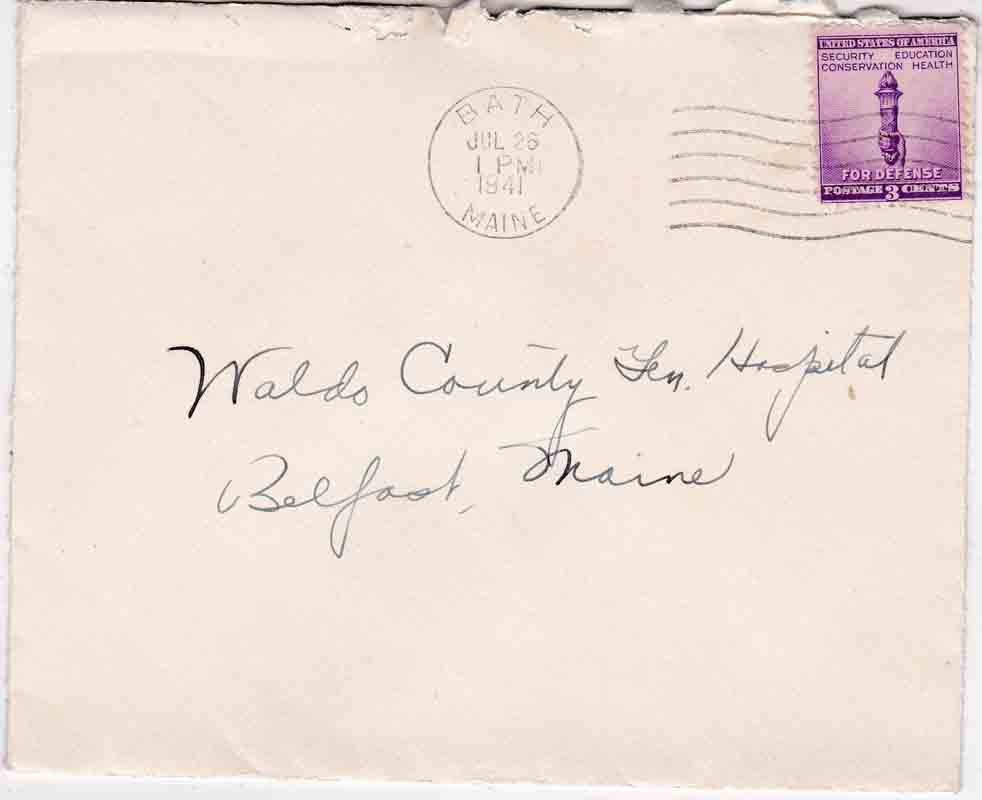 BATH
JUL 26
1 PM
1941
MAINE
UNITED STATES OF AMERICA
SECURITY EDUCATION
CONSERVATION HEALTH
FOR DEFENSE
POSTAGE 3 CENTS
Waldo County Gen. Hospital
Belfast, Maine